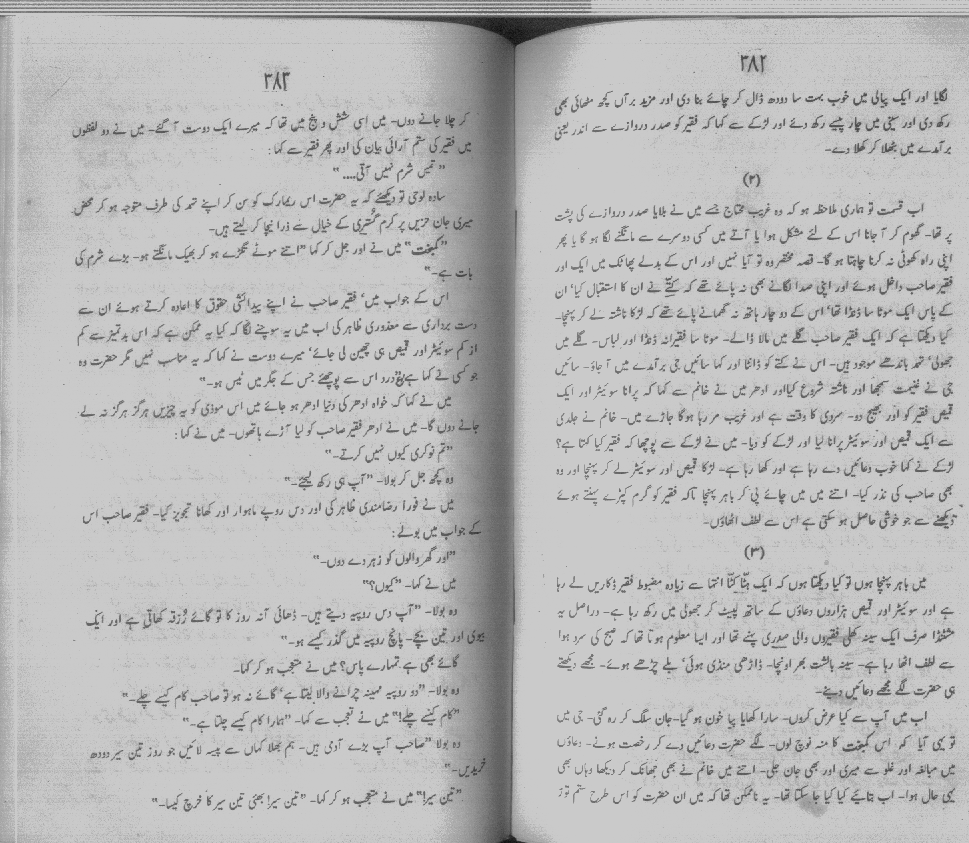 ۳۸۲
لگایا اور ایک پیالی میں خوب بہت سا دودھ ڈال کر چائے بنا دی اور مزید برآں کچھ مٹھائی بھی
رکھ دی اور سینی میں چار پیسے رکھ دئے اور لڑکے سے کہا کہ فقیر کو صدر دروازے سے اندر یعنی
برآمدے میں بٹھلا کر کھلا دے۔
(۲)
اب قسمت تو ہماری ملاحظہ ہو کہ وہ غریب محتاج جسے میں نے بلایا صدر دروازے کی پشت
پر تھا۔ گھوم کر آ جانا اس کے لئے مشکل ہوا یا آتے میں کسی دوسرے سے مانگنے لگا ہو گا یا پھر
اپنی راہ کھوٹی نہ کرنا چاہتا ہو گا۔ قصہ مختصر وہ تو آیا نہیں اور اس کے بدلے پھاٹک میں ایک اور
فقیر صاحب داخل ہوئے اور اپنی صدا لگانے بھی نہ پائے تھے کہ کتے نے ان کا استقبال کیا' ان
کے پاس ایک موٹا سا ڈنڈا تھا' اس کے دو چار ہاتھ نہ گھمانے پائے تھے کہ لڑکا ناشتہ لے کر پہنچا۔
کیا دیکھتا ہے کہ ایک فقیر صاحب گلے میں مالا ڈالے۔ موٹا سا فقیرانہ ڈنڈا اور لباس۔ گلے میں
جھولی' تہمد باندھے موجود ہیں۔ اس نے کتے کو ڈانٹا اور کہا سائیں جی برآمدے میں آ جاؤ۔ سائیں
جی نے غنیمت سمجھا اور ناشتہ شروع کیا اور ادھر میں نے خانم سے کہا کہ پرانا سوئیٹر اور ایک
قمیص فقیر کو اور بھیج دو۔ سردی کا وقت ہے اور غریب مر رہا ہوگا جاڑے میں۔ خانم نے جلدی
سے ایک قمیص اور سوئیٹر پرانا لیا اور لڑکے کو دیا۔ میں نے لڑکے سے پوچھا کہ فقیر کیا کہتا ہے؟
لڑکے نے کہا خوب دعائیں دے رہا ہے اور کھا رہا ہے۔ لڑکا قمیص اور سوئیٹر لے کر پہنچا اور وہ
بھی صاحب کی نذر کیا۔ اتنے میں میں چائے پی کر باہر پہنچا تاکہ فقیر کو گرم کپڑے پہنتے ہوئے
دیکھنے سے جو خوشی حاصل ہو سکتی ہے اس سے لطف اٹھاؤں۔
(۳)
میں باہر پہنچا ہوں تو کیا دیکھتا ہوں کہ ایک ہٹا کٹا انتہا سے زیادہ مضبوط فقیر ڈکاریں لے رہا
ہے اور سوئیٹر اور قمیص ہزاروں دعاؤں کے ساتھ لپیٹ کر جھولی میں رکھ رہا ہے۔ دراصل یہ
مشٹنڈا صرف ایک سینہ کھلی فقیروں والی صدری پہنے تھا اور ایسا معلوم ہوتا تھا کہ صبح کی سرد ہوا
سے لطف اٹھا رہا ہے۔ سینہ بالشت بھر اونچا۔ ڈاڑھی منڈی ہوئی' بلے چڑھے ہوئے۔ مجھے دیکھتے
ہی حضرت لگے مجھے دعائیں دینے۔
اب میں آپ سے کیا عرض کروں۔ سارا کھایا پیا خون ہو گیا۔ جان سلگ کر رہ گئی۔ جی میں
تو یہی آیا کہ اس کمبخت کا منہ نوچ لوں۔ لگے حضرت دعائیں دے کر رخصت ہونے۔ دعاؤں
میں مبالغہ اور غلو سے میری اور بھی جان جلی۔ اتنے میں خانم نے بھی جھانک کر دیکھا وہاں بھی
یہی حال ہوا۔ اب بتائیے کیا کیا جا سکتا تھا۔ یہ ناممکن تھا کہ میں ان حضرت کو اس طرح ستم توڑ
۳۸۳
کر چلا جانے دوں۔ میں اسی شش و پنج میں تھا کہ میرے ایک دوست آ گئے۔ میں نے دو لفظوں
میں فقیر کی ستم آرائی بیان کی اور پھر فقیر سے کہا:
"تمہیں شرم نہیں آتی...."
سادہ لوحی تو دیکھئے کہ یہ حضرت اس ریمارک کو سن کر اپنے تہمد کی طرف متوجہ ہو کر محض
میری جان حزیں پر کرم گستری کے خیال سے ذرا نیچا کر لیتے ہیں۔
"کمبخت" میں نے اور جل کر کہا "اتنے موٹے تگڑے ہو کر بھیک مانگتے ہو۔ بڑے شرم کی
بات ہے۔"
اس کے جواب میں' فقیر صاحب نے اپنے پیدائشی حقوق کا اعادہ کرتے ہوئے ان سے
دست برداری سے معذوری ظاہر کی اب میں یہ سوچنے لگا کہ کیا یہ ممکن ہے کہ اس بدتمیز سے کم
از کم سوئیٹر اور قمیص ہی چھین لی جائے' میرے دوست نے کہا کہ یہ مناسب نہیں مگر حضرت وہ
جو کسی نے کہا ہے درد اس سے پوچھئے جس کے جگر میں ٹیس ہو۔"
میں نے کہا کہ خواہ ادھر کی دنیا ادھر ہو جائے میں اس موذی کو یہ چیزیں ہرگز ہرگز نہ لے
جانے دوں گا۔ میں نے ادھر فقیر صاحب کو لیا آڑے ہاتھوں۔ میں نے کہا:
"تم نوکری کیوں نہیں کرتے۔"
وہ کچھ جل کر بولا۔ "آپ ہی رکھ لیجئے۔"
میں نے فوراً رضامندی ظاہر کی اور دس روپے ماہوار اور کھانا تجویز کیا۔ فقیر صاحب اس
کے جواب میں بولے:
"اور گھر والوں کو زہر دے دوں۔"
میں نے کہا۔ "کیوں؟"
وہ بولا۔ "آپ دس روپیہ دیتے ہیں۔ ڈھائی آنہ روز کا تو گائے رزقہ کھاتی ہے اور ایک
بیوی اور تین بچے۔ پانچ روپیہ میں گذر کیسے ہو۔"
گائے بھی ہے تمہارے پاس؟ میں نے متعجب ہو کر کہا۔
وہ بولا۔ "دو روپیہ مہینہ چرانے والا لیتا ہے' گائے نہ ہو تو صاحب کام کیسے چلے۔"
"کام کیسے چلے!" میں نے تعجب سے کہا۔ "ہمارا کام کیسے چلتا ہے۔"
وہ بولا "صاحب آپ بڑے آدمی ہیں۔ ہم بھلا کہاں سے پیسہ لائیں جو روز تین سیر دودھ
خریدیں۔"
"تین سیر!" میں نے متعجب ہو کر کہا۔ "تین سیر! بھئی تین سیر کا خرچ کیسا۔"